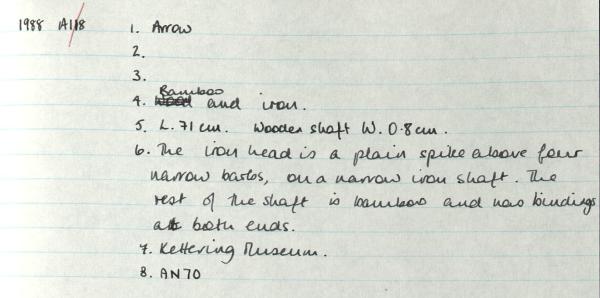 1988 A1/18 1. Arrow
2.
3.
Bamboo
4. Wood and iron.
5. L. 71 cm. Wooden shaft W. 0.8 cm.
6. The iron head is a plain spike above four
narrow barbs, on a narrow iron shaft. The
rest of the shaft is bamboo and has bindings
at both ends.
7. Kettering Museum.
8. AN70